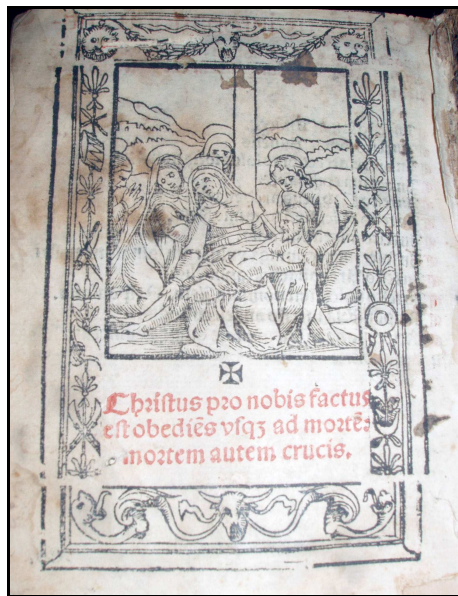 Christus pro nobis factus
est obediēs vsqꝫ ad mortē:
mortem autem crucis.